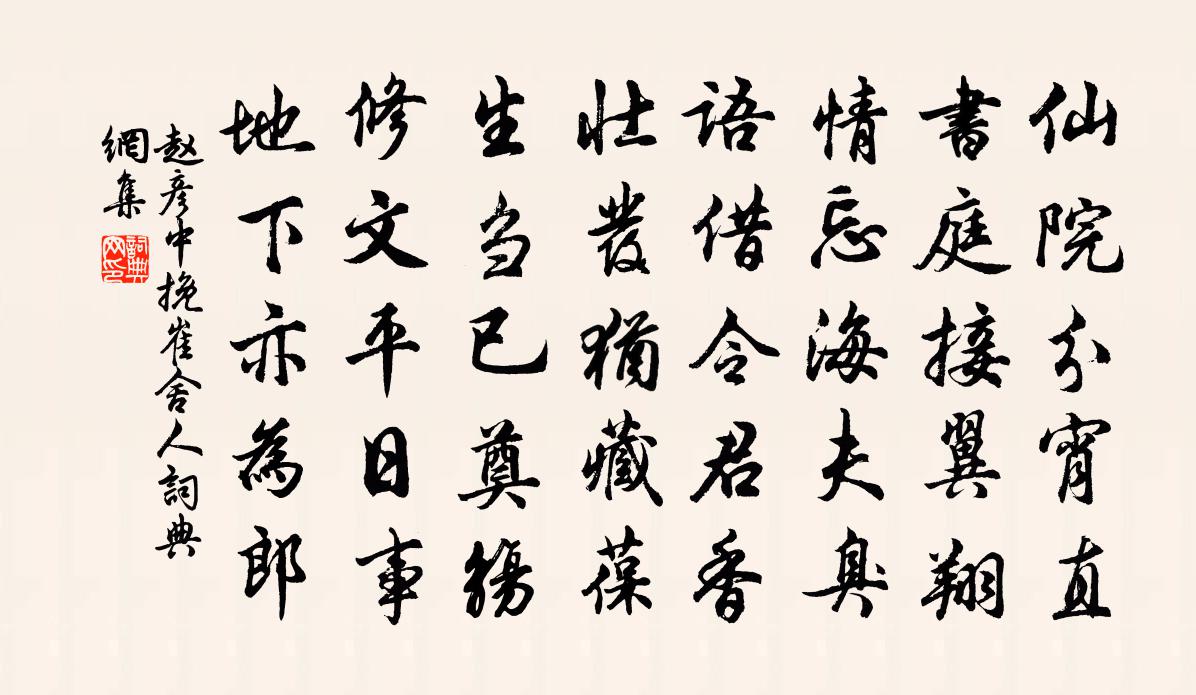 仙院分宵直
書庭接翼翔
情忘海夫臭
語借令君香
壮發猶藏葆
生芻已奠觴
修文平日事
地下亦為郎
赵彦中挽崔舍人詞典
網集
詞典
网印